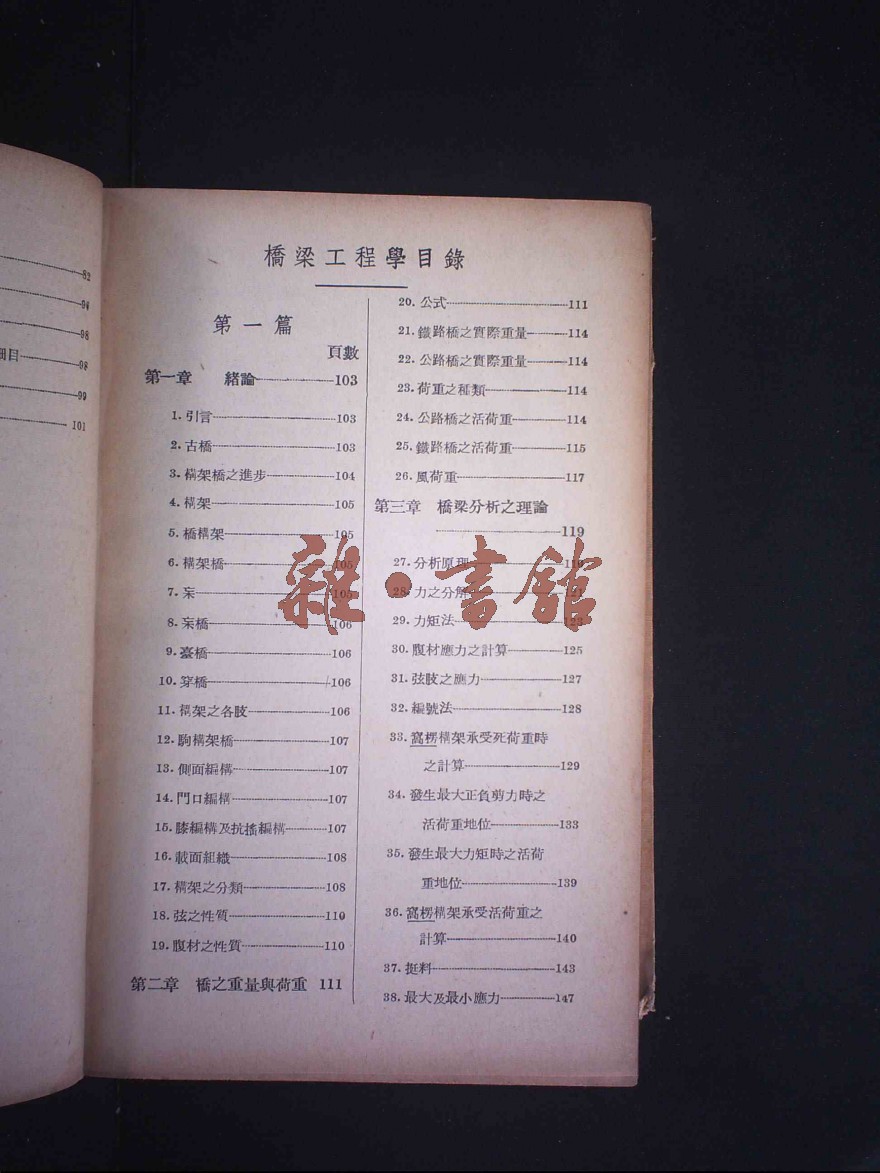 82
94
98
細目 98
99
101
橋梁工程學目錄
第一篇
頁數
第一章 緒論 103
1. 引言 103
2. 古橋 103
3. 構架橋之進步 104
4. 構架 105
5. 橋構架 105
6. 構架橋 105
7. 宲 105
8. 宲橋 106
9. 臺橋 106
10. 穿橋 106
11. 構架之各肢 106
12. 駒構架橋 107
13. 側面編構 107
14. 門口編構 107
15. 膝編構及抗搖編構 107
16. 載面組織 108
17. 構架之分類 108
18. 弦之性質 110
19. 腹材之性質 110
第二章 橋之重量與荷重 111
20. 公式 111
21. 鐵路橋之實際重量 114
22. 公路橋之實際重量 114
23. 荷重之種類 114
24. 公路橋之活荷重 114
25. 鐵路橋之活荷重 115
26. 風荷重 117
第三章 橋梁分析之理論
119
27. 分析原理 119
28. 力之分解 121
29. 力矩法 123
30. 腹材應力之計算 125
31. 弦肢之應力 127
32. 編號法 128
33. 窩楞構架承受死荷重時
之計算 129
34. 發生最大正負剪力時之
活荷重地位 133
35. 發生最大力矩時之活荷
重地位 139
36. 窩楞構架承受活荷重之
計算 140
37. 挺料 143
38. 最大及最小應力 147
雜·書館